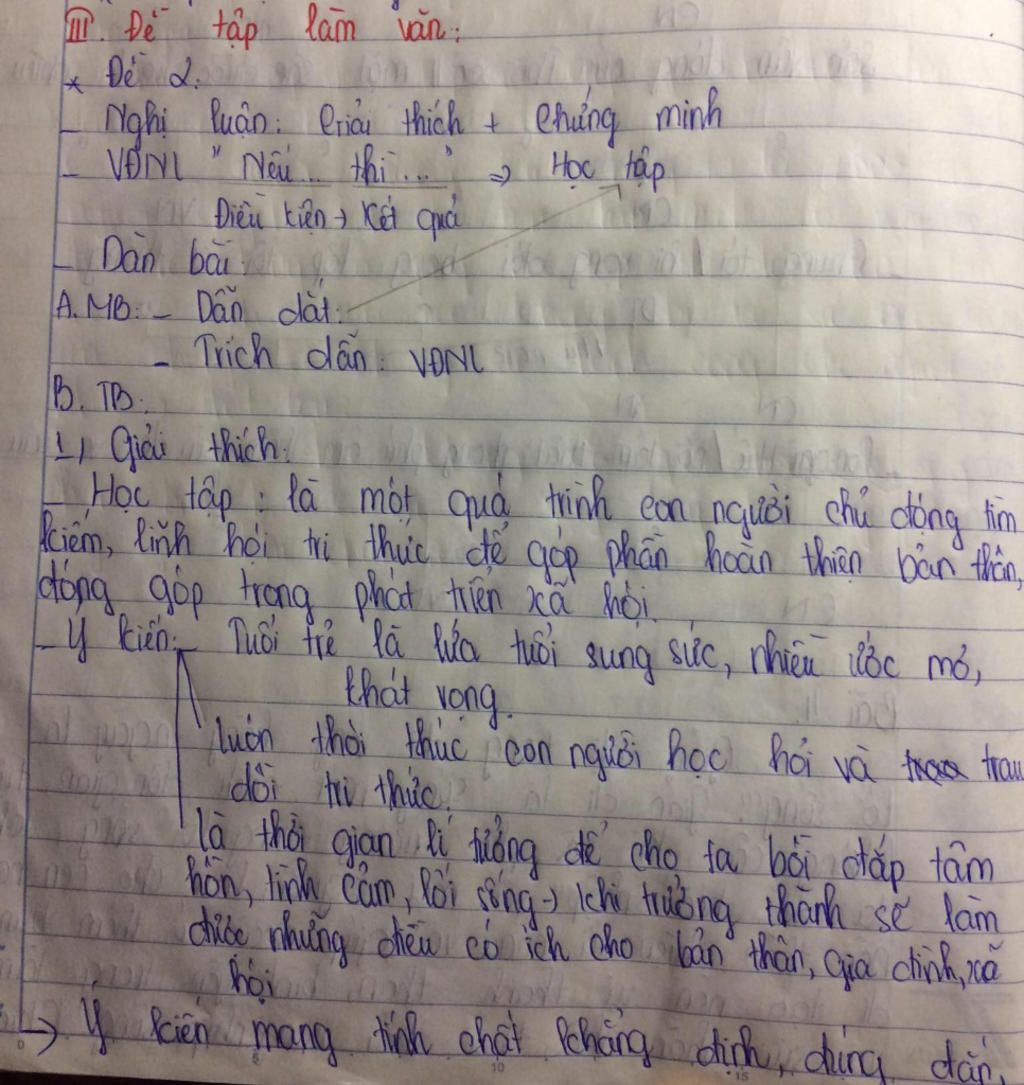 III. Đề tập làm văn:
* Đề 2.
- Nghị luận: Giải thích + chứng minh
- VĐNL "Nếu... thì..." ⇒ Học tập
Điều kiện → Kết quả
- Dàn bài:
A. MB: - Dẫn dắt:
- Trích dẫn: VĐNL
B. TB:
1, Giải thích:
- Học tập: là một quá trình con người chủ động tìm
kiếm, lĩnh hội tri thức để góp phần hoàn thiện bản thân,
đóng góp trong phát triển xã hội.
- Ý kiến: - Tuổi trẻ là lứa tuổi sung sức, nhiều ước mơ,
khát vọng.
luôn thôi thúc con người học hỏi và trau
dồi tri thức.
là thời gian lí tưởng để cho ta bồi đắp tâm
hồn, tình cảm, lối sống → khi trưởng thành sẽ làm
được những điều có ích cho bản thân, gia đình, xã
hội
→ Ý kiến mang tính chất khẳng định, đúng đắn.